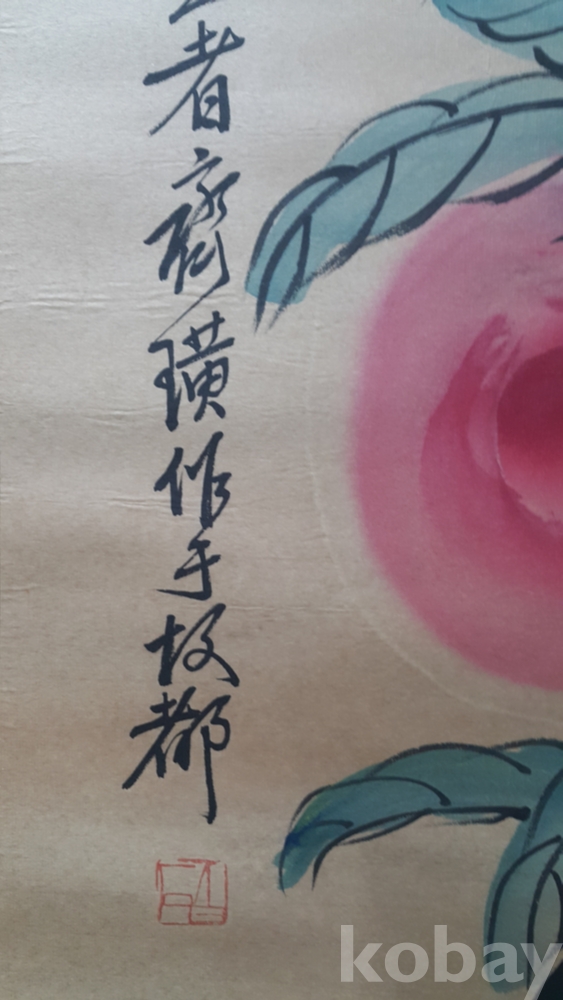 者齊璜作于故都
kobay